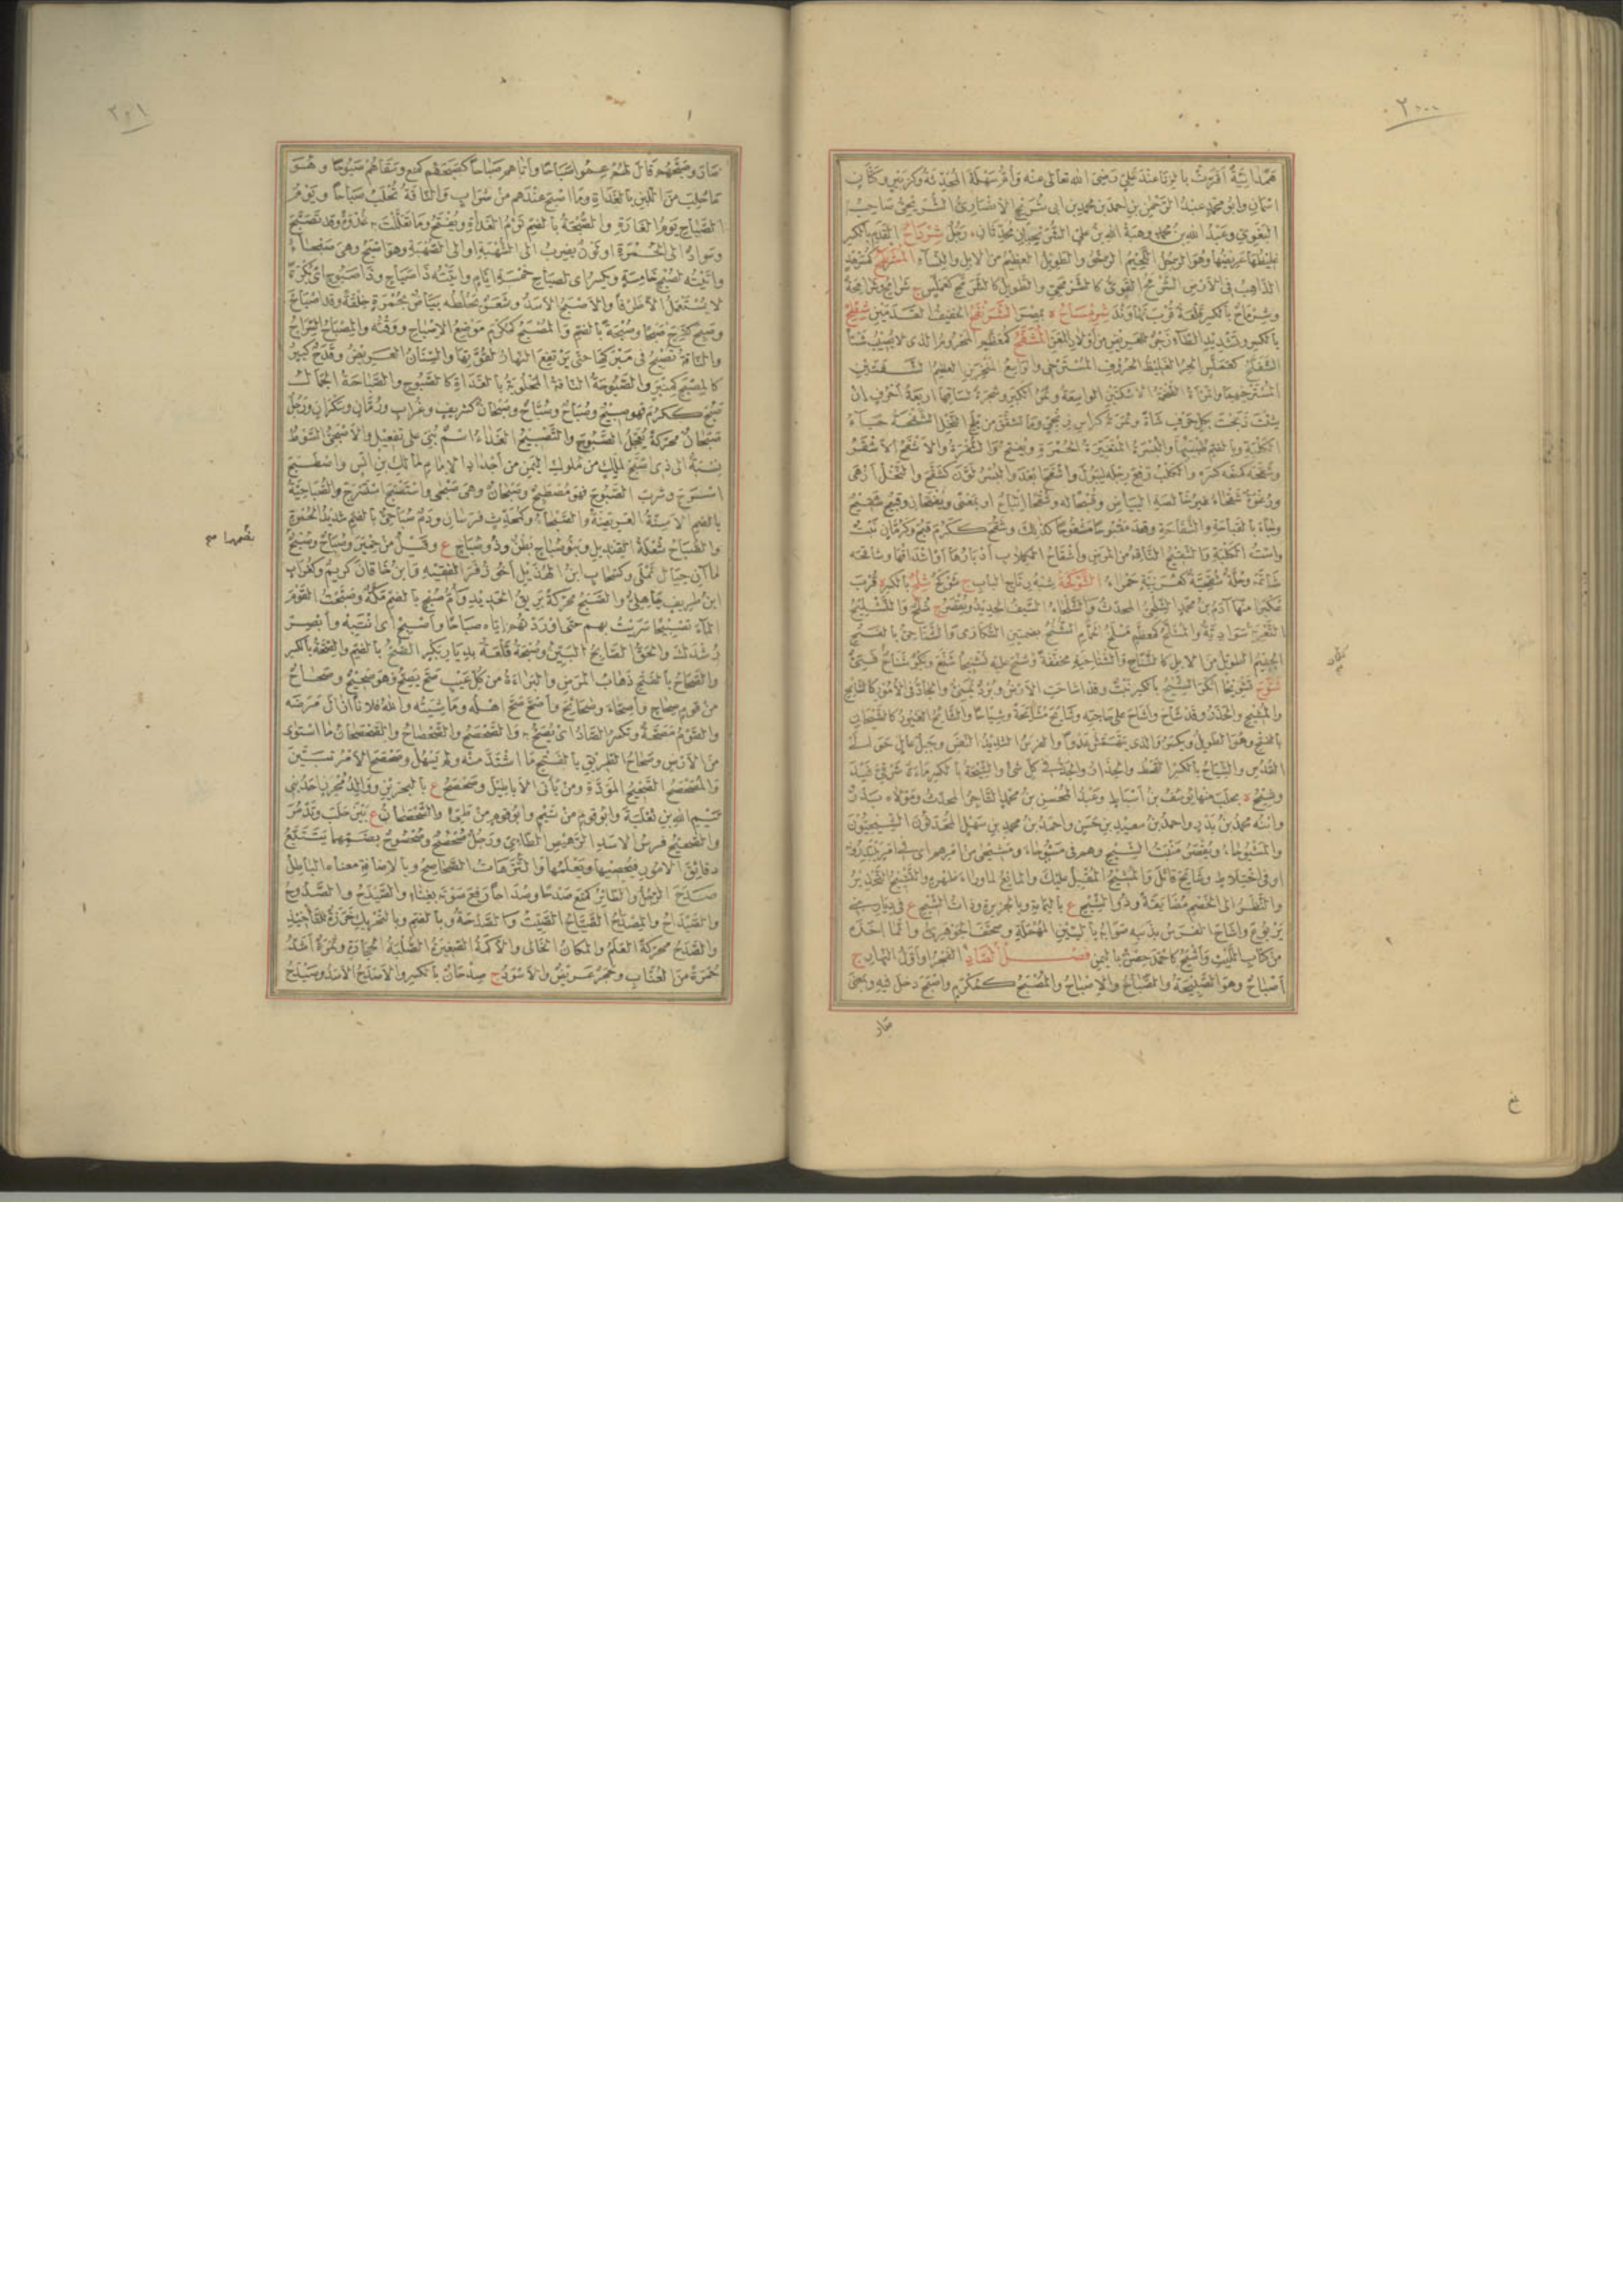 ٢٠٠
همدانية اقرت بالزنا عند علي رضي الله تعالى عنه وأم سهلة المحدثة وكزبير وكتان
اسمان وابو محمد عبد الرحمن بن احمد بن محمد بن ابي شريح الانصاري الشريحي صاحب
البغوي وعبد الله بن محمد وهبة الله بن علي الشريحيان محدثان رجل شرداح القدم بالكسر
غليظها عريضها وهو الرجل اللحيم الرخو والطويل العظيم من الابل والنساء المشرمح كمسرهد
الذاهب في الارض الشرمح القوي كالشرمحي والطويل كالشرمح كعملس ج شرامح وشرامحة
وشرماح بالكسر قلعة قرب نهاوند شرمساح ة بمصر الشرنفح الخفيف القدمين شطح
بالكسر وتشديد الطاء زجر للعريض من اولاد المعز المشفح كمعظم المحروم الذي لا يصيب شيئا
الشفلح كعملس الحر الغليظ الحروف المسترخي والواسع المنخرين العظيم الشفتين
المسترخيهما والمرأة الضخمة الاسكتين الواسعة وثمر الكبر وشجرة لساقها اربعة احرف ان
شئت ذبحت بكل حرف شاة وثمرته كرأس زنجي وما تشقق من بلح النخل الشقحة حياء
الكلبة وبالضم طبيتها والبسرة المتغيرة الحمرة ويفتح والشقرة والاشقح الاشقر
وشقحه كمنعه كسره والكلب رفع رجله ليبول واشقح ابعد والبسر لون كشقح والنخل ازهى
ورغوة شقحاء غير خالصة البياض وقبحا له وشقحا اتباع او بمعنى ويفتحان وقبيح شقيح
وجاء بالقباحة والشقاحة وقعد مقبوحا مشقوحا كذلك وشقح ككرم قبح وكرمان نبت
واست الكلبة والشقيح الناقه من المرض واشقاح الكلاب ادبارها او اشداقها وشاقحه
شاتمه وحلة شقحية كعربية حمراء الشوكحة شبه رتاج الباب ج شوكح شلح بالكسر ة قرب
عكبرا منها آدم بن محمد الشلحي المحدث والشلحاء السيف الحديد ويقصر ج شلح والتشليح
التعرية سوادية والمشلح كمعظم مسلخ الحمام الشنح بضمتين السكارى والشناحي بالفتح
الجسيم الطويل من الابل كالشناح والشناحية مخففة وشنح عليه تشنيحا شنع وبكر شناح فتي
شوح تشويحا انكر الشيح بالكسر نبت وقد اشاحت الارض وبرد يمني والجاد في الامور كالشائح
والمشيح والحذر وقد شاح واشاح على حاجته وشايح مشايحة وشياحا والشائح الغيور كالشيحان
بالفتح وهو الطويل ويكسر والذي يتهمس عدوا والفرس الشديد النفس وجبل عال حوالي
القدس والشياح بالكسر القحط والحذار والجد في كل شيء والشيحة بالكسر ماءة شرقي فيد
وشيحة ة بحلب منها يوسف بن اسباط وعبد المحسن بن محمد التاجر المحدث ومولاه بدر
وابنه محمد بن بدر واحمد بن سعيد بن حسن واحمد بن محمد بن سهل المحدثون الشيحيون
والمشيوحاء ويقصر منبت الشيح وهم في مشيوحاء ومشيحى من امرهم اي في امر يبتدرونه
او في اختلاط وشايح قاتل والمشيح المقبل عليك والمانع لما وراء ظهره والتشييح التحذير
والنظر الى الخصم مضايقة وذو الشيح ع باليمامة وبالجزيرة وذات الشيح ع في ديار بني
يربوع واشاح الفرس بذنبه صوابه بالسين المهملة وصحف الجوهري وانما اخذه
من كتاب الليث واشيح كاحمد حصن باليمن فصل الصاد الفجر او اول النهار ج
اصباح وهو الصبيحة والصباح والاصباح والمصبح كمكرم واصبح دخل فيه وبمعنى
صار
٢٠١
صار وصبحهم قال لهم عم صباحا واتاهم صباحا كصبحهم كمنع وسقاهم صبوحا وهو
ما حلب من اللبن بالغداة وما اصبح عندهم من شراب والناقة تحلب صباحا ويوم
الصباح يوم الغارة والصبحة بالضم نوم الغداة ويفتح وما تعللت به غدوة وقد تصبح
وسواد الى الحمرة او لون يضرب الى الشهبة او الى الصهبة وهو اصبح وهي صبحاء
واتيته لصبح خامسة ويكسر اي لصباح خمسة ايام واتيته ذا صباح وذا صبوح اي بكرة
لا يستعمل الا ظرفا والاصبح الاسد وشعر يخلطه بياض بحمرة خلقة وقد اصباح
وصبح كفرح صبحا وصبحة بالضم والمصبح كمكرم موضع الاصباح ووقته والمصباح السراج
والناقة تصبح في مبركها حتى يرتفع النهار لقوتها والسنان العريض وقدح كبير
كالمصبح كمنبر والصبوحة الناقة المحلوبة بالغداة كالصبوح والصباحة الجمال
صبح ككرم فهو صبيح وصباح وصباح وصبحان كشريف وغراب ورمان وسكران ورجل
صبحان محركة يعجل الصبوح والتصبيح الغداء اسم بني على تفعيل والاصبحي السوط
نسبة الى ذي اصبح لملك من ملوك اليمن من اجداد الامام مالك بن انس واصطبح
اسرج وشرب الصبوح فهو مصطبح وصبحان وهي صبحى واستصبح استسرج والصباحية
بالضم الاسنة العريضة والصبحاء وكمحدث فرسان ودم صباحي بالضم شديد الحمرة
والصباح شعلة القنديل وبنو صباح بطن وذو صباح ع وقيل من حمير وصباح وصبح
ماآن حيال نملى وكسحاب ابن الهذيل اخو زفر الفقيه وابن خاقان كريم وكغراب
ابن طريف جاهلي والصبح محركة بريق الحديد وأم صبح بالضم مكة وصبحت القوم
الماء تصبيحا سريت بهم حتى اوردتهم اياه صباحا واصبح اي انتبه وابصر
رشدك والحق الصابح البين وصبحة قلعة بديار بكر الصح بالضم والصحة بالكسر
والصحاح بالفتح ذهاب المرض والبراءة من كل عيب صح يصح فهو صحيح وصحاح
من قوم صحاح واصحاء وصحائح واصح صح اهله وماشيته والله فلانا ازال مرضه
والصوم مصحة وتكسر الصاد اي يصح به والصحصح والصحصاح والصحصحان ما استوى
من الارض وصحاح الطريق بالفتح ما اشتد منه ولم يسهل وصحصح الامر تبين
والمصحصح الصحيح المودة ومن يأتي الاباطيل وصحصح ع بالبحرين ووالد محرز احد بني
تيم الله بن ثعلبة وابو قوم من تيم وابو قوم من طيئ والصحصحان ع بين حلب وتدمر
والصحيح فرس الاسد الرهيص الطائي ورجل صحصح وصحصوح بضمهما يتتبع
دقائق الامور فيحصيها ويعلمها والترهات الصحاصح وبالاضافة معناه الباطل
صدح الرجل والطائر كمنع صدحا وصداحا رفع صوته بغناء والصيدح والصدوح
والصيداح والمصدح الصياح الصيت والصدحة وبالضم وبالتحريك خرزة للتأخيذ
والصدح محركة العلم والمكان الخالي والاكمة الصغيرة الصلبة الحجارة وثمرة اشد
حمرة من العناب وحجر عريض والاسود ج صدحان بالكسر والاصدح الاسد وصيدح
بضمهما صح